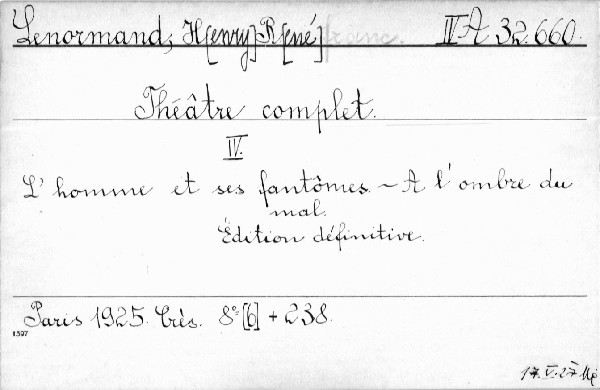 Lenormand, H[enry] R[ené] franc. IV A 32.660.
Théâtre complet.
IV.
L'homme et ses fantômes. – A l'ombre du
mal.
Édition définitive.
Paris 1925. Crès. 8° [6] + 238.
1597
17.V.27